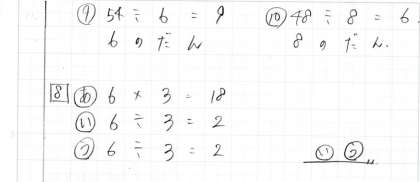 ⑨ 54 ÷ 6 = 9
6のだん
⑩ 48 ÷ 8 = 6
8のだん.
8 あ 6 × 3 = 18
い 6 ÷ 3 = 2
う 6 ÷ 3 = 2
い う